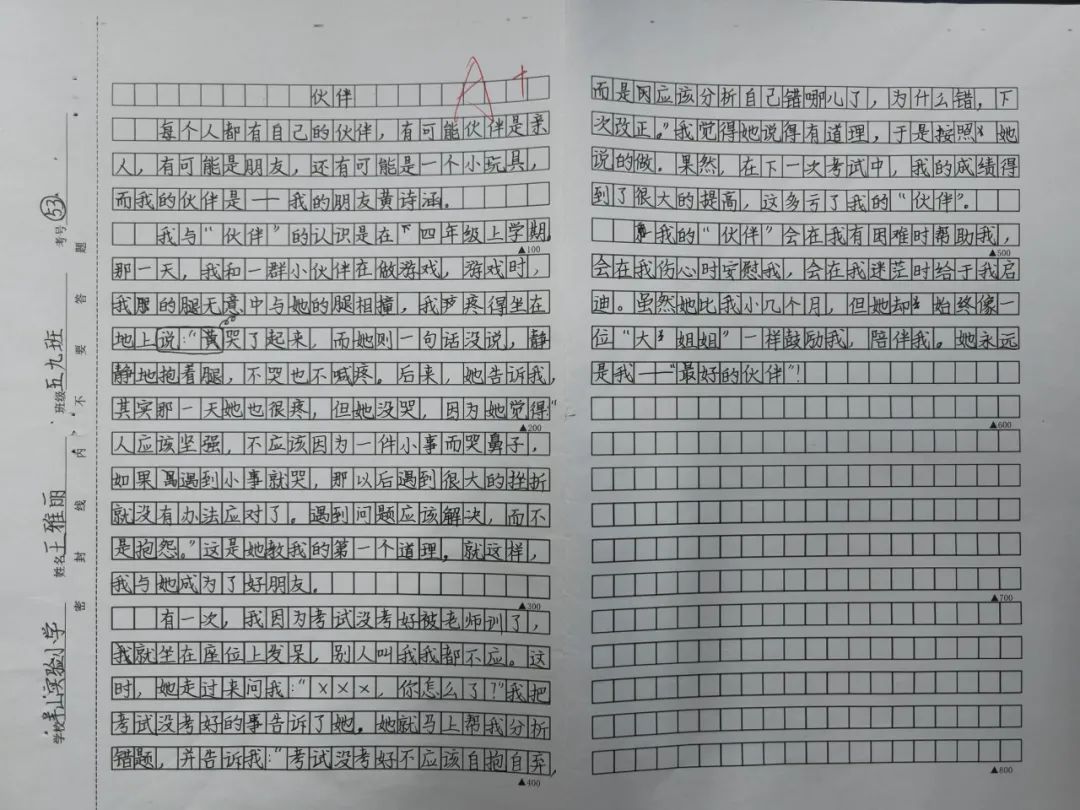 伙伴
A+
每个人都有自己的伙伴，有可能伙伴是亲
人，有可能是朋友，还有可能是一个小玩具，
而我的伙伴是——我的朋友黄诗涵。
我与“伙伴”的认识是在四年级上学期。
▲100
那一天，我和一群小伙伴在做游戏，游戏时，
我的腿无意中与她的腿相撞，我疼得坐在
地上说：“黄哭了起来，而她则一句话没说，静
静地抱着腿，不哭也不喊疼。后来，她告诉我，
其实那一天她也很疼，但她没哭，因为她觉得：“
▲200
人应该坚强，不应该因为一件小事而哭鼻子，
如果遇到小事就哭，那以后遇到很大的挫折
就没有办法应对了。遇到问题应该解决，而不
是抱怨。”这是她教我的第一个道理。就这样，
我与她成为了好朋友。
▲300
有一次，我因为考试没考好被老师训了，
我就坐在座位上发呆，别人叫我我都不应。这
时，她走过来问我：“×××，你怎么了？”我把
考试没考好的事告诉了她。她就马上帮我分析
错题，并告诉我：“考试没考好不应该自抱自弃，
▲400
而是因应该分析自己错哪儿了，为什么错，下
次改正。”我觉得她说得有道理，于是按照她
说的做。果然，在下一次考试中，我的成绩得
到了很大的提高，这多亏了我的“伙伴”。
我的“伙伴”会在我有困难时帮助我，
▲500
会在我伤心时安慰我，会在我迷茫时给于我启
迪。虽然她比我小几个月，但她却始终像一
位“大姐姐”一样鼓励我，陪伴我。她永远
是我——“最好的伙伴”！
▲600
▲700
▲800
学校 实验小学
姓名 王雅丽
班级 五九班
考号 53
密 封 线 内 不 要 答 题